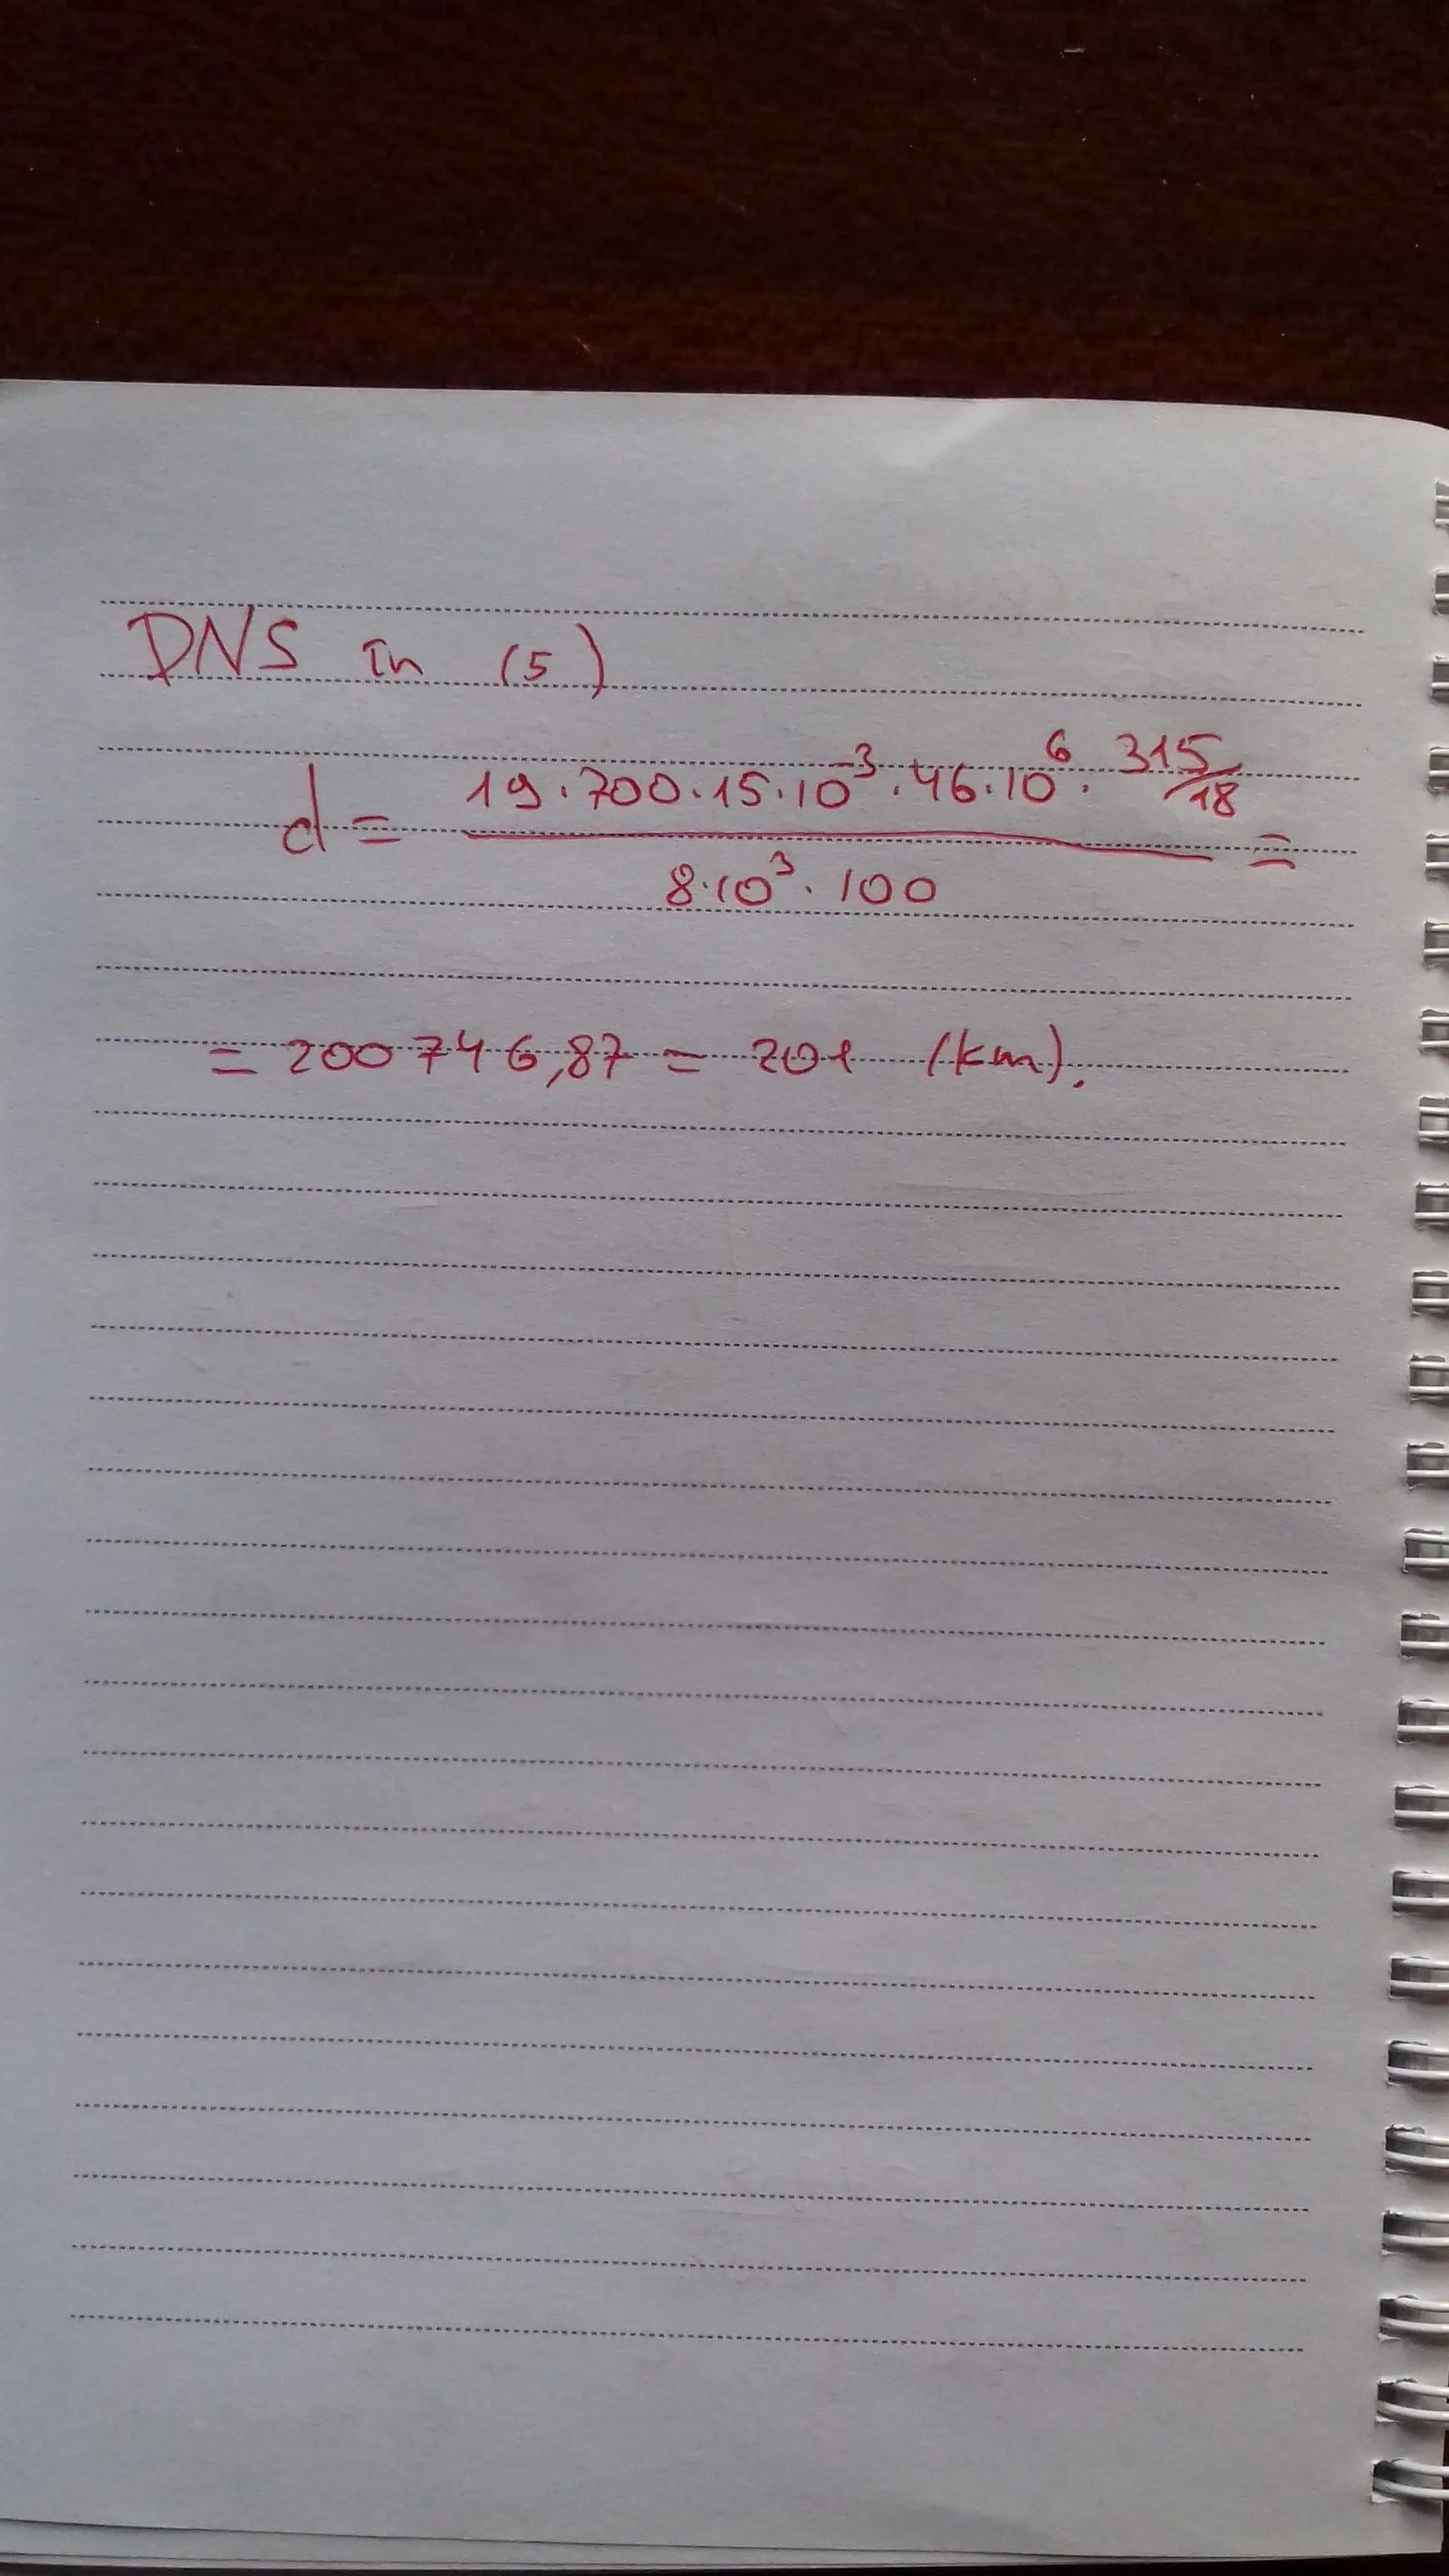 DNS în (5)
d = 19·700·15·10⁻³·46·10⁶·315/18 =
8·10³·100
= 200746,87 = 201 (km).